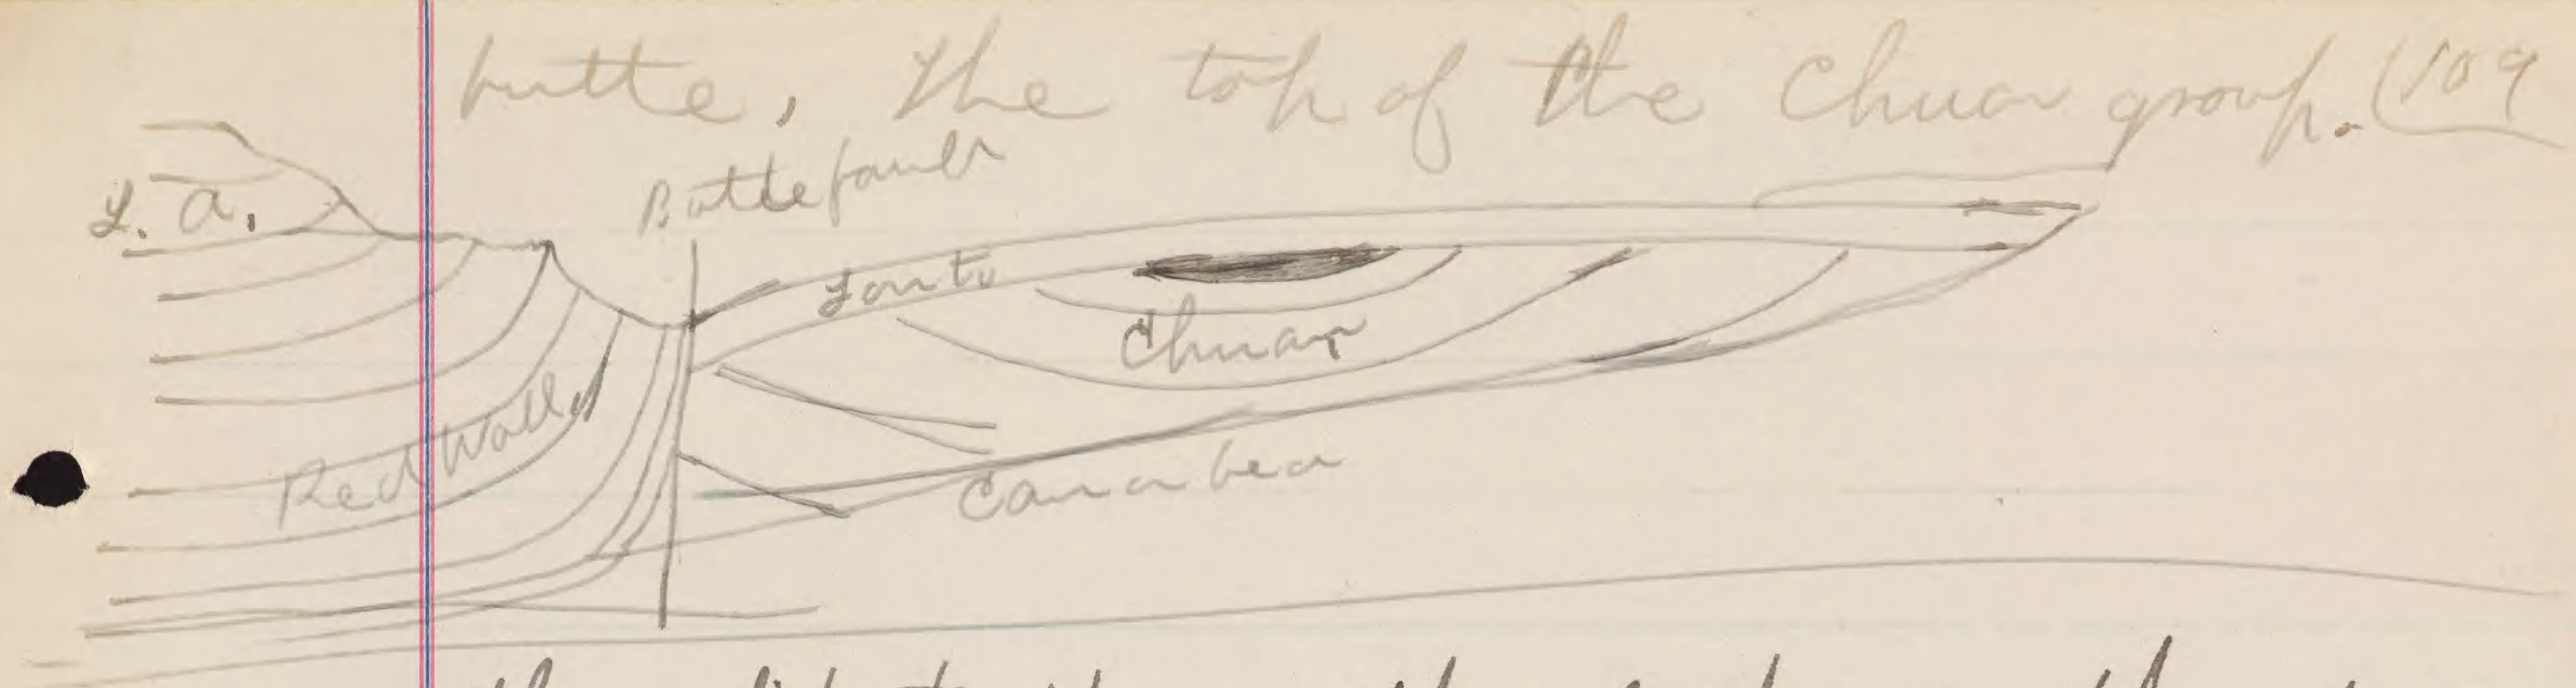 butte, the top of the Chuar group. (109
Butte fault
L. A.
Tonto
Chuar
Red Wall